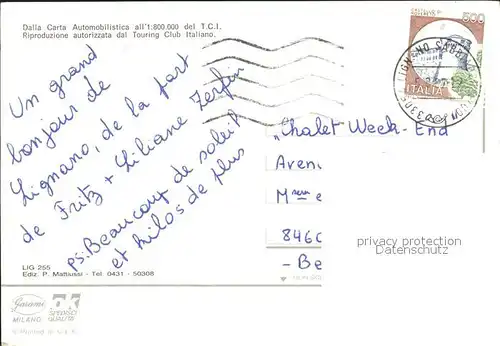 Dalla Carta Automobilistica all'1:800.000 del T.C.I.
Riproduzione autorizzata dal Touring Club Italiano.
500
ITALIA
Un grand
bonjour de
Lignano, de la part
de Fritz + Liliane Zerfin
ps: Beaucoup de soleil
et kilos de plus
"Chalet Week-End
Aven
Mme e
8460
- Be
privacy protection
Datenschutz
LIG 255
Ediz. P. Mattiussi - Tel. 0431 - 50308
Garami
MILANO